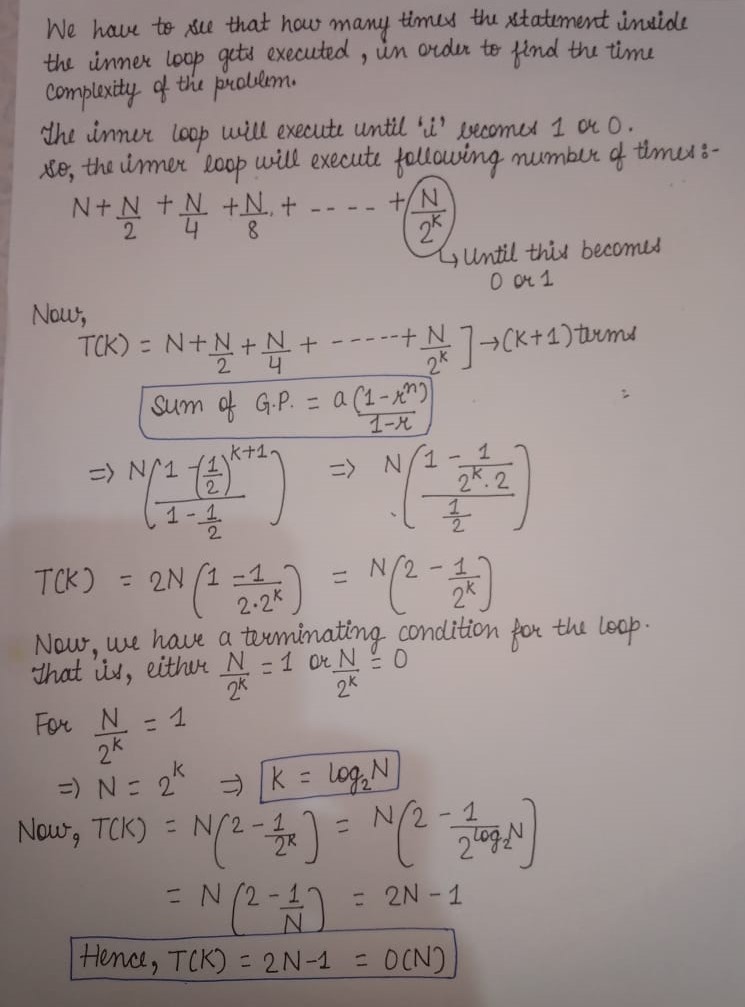 We have to see that how many times the statement inside
the inner loop gets executed, in order to find the time
complexity of the problem.
The inner loop will execute until 'i' becomes 1 or 0.
So, the inner loop will execute following number of times:-
N + N/2 + N/4 + N/8 + ---- + N/2^K
↳ Until this becomes
0 or 1
Now,
T(K) = N + N/2 + N/4 + -----+ N/2^K ] → (K+1) terms
Sum of G.P. = a(1-r^n)/(1-r)
=> N((1-(1/2)^(K+1))/(1-1/2)) => N((1-1/(2^K.2))/(1/2))
T(K) = 2N(1-1/(2.2^K)) = N(2-1/2^K)
Now, we have a terminating condition for the loop.
That is, either N/2^K = 1 or N/2^K = 0
For N/2^K = 1
=> N = 2^K => K = log₂N
Now, T(K) = N(2-1/2^K) = N(2-1/2^(log₂N))
= N(2-1/N) = 2N-1
Hence, T(K) = 2N-1 = O(N)